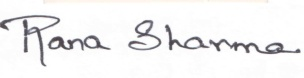 Rana Sharma